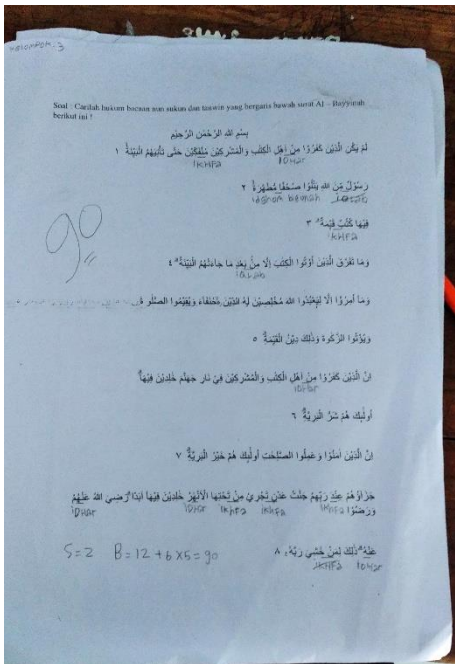 KELOMPOK : 3
Soal : Carilah hukum bacaan nun sukun dan tanwin yang bergaris bawah surat Al – Bayyinah
berikut ini !
بِسْمِ اللهِ الرَّحْمٰنِ الرَّحِيْمِ
لَمْ يَكُنِ الَّذِيْنَ كَفَرُوْا مِنْ اَهْلِ الْكِتٰبِ وَالْمُشْرِكِيْنَ مُنْفَكِّيْنَ حَتّٰى تَأْتِيَهُمُ الْبَيِّنَةُ ١
IKHFa IDHar
رَسُوْلٌ مِّنَ اللهِ يَتْلُوْا صُحُفًا مُّطَهَّرَةً ٢
idghom bigunah
فِيْهَا كُتُبٌ قَيِّمَةٌ ٣
IKHFa
90
وَمَا تَفَرَّقَ الَّذِيْنَ اُوْتُوا الْكِتٰبَ اِلَّا مِنْۢ بَعْدِ مَا جَاۤءَتْهُمُ الْبَيِّنَةُ ٤
وَمَآ اُمِرُوْٓا اِلَّا لِيَعْبُدُوا اللهَ مُخْلِصِيْنَ لَهُ الدِّيْنَ حُنَفَاۤءَ وَيُقِيْمُوا الصَّلٰو
وَيُؤْتُوا الزَّكٰوةَ وَذٰلِكَ دِيْنُ الْقَيِّمَةِ ٥
اِنَّ الَّذِيْنَ كَفَرُوْا مِنْ اَهْلِ الْكِتٰبِ وَالْمُشْرِكِيْنَ فِيْ نَارِ جَهَنَّمَ خٰلِدِيْنَ فِيْهَا
IDHar
اُولٰۤىِٕكَ هُمْ شَرُّ الْبَرِيَّةِ ٦
اِنَّ الَّذِيْنَ اٰمَنُوْا وَعَمِلُوا الصّٰلِحٰتِ اُولٰۤىِٕكَ هُمْ خَيْرُ الْبَرِيَّةِ ٧
جَزَاۤؤُهُمْ عِنْدَ رَبِّهِمْ جَنّٰتُ عَدْنٍ تَجْرِيْ مِنْ تَحْتِهَا الْاَنْهٰرُ خٰلِدِيْنَ فِيْهَآ اَبَدًا رَضِيَ اللهُ عَنْهُمْ
IDHar IDHar IKHFa IKHFa IKHFa وَرَضُوْا
عَنْهُ ذٰلِكَ لِمَنْ خَشِيَ رَبَّهٗ ٨
S=2 B=12 + 6 x5 = 90 IKHFa IDHar